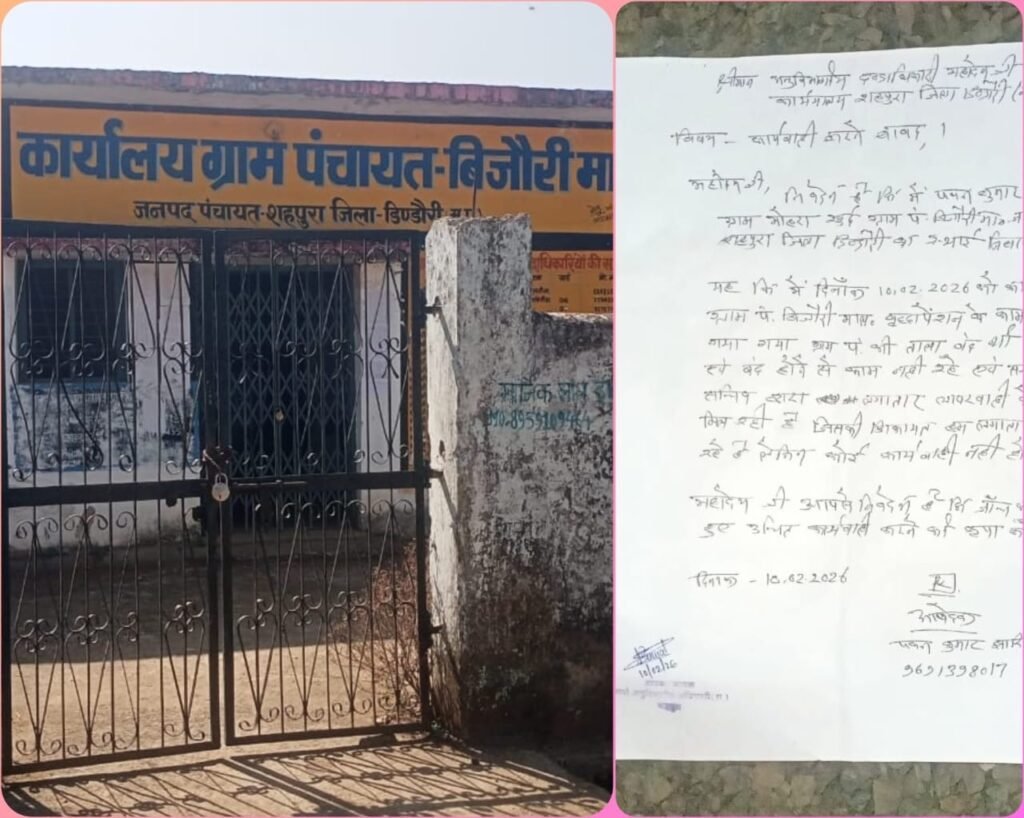 कार्यालय ग्राम पंचायत-बिजौरी मा
जनपद पंचायत-शहपुरा जिला-डिण्डौरी म.प्र.
दाधिकारियों की स
मानिक लाल
MO-8959109464
श्रीमान अनुविभागीय दण्डाधिकारी महोदय जी
कार्यालय शहपुरा जिला डिण्डौरी
विषय - कार्यवाही करने बावद्,।
महोदय जी,
निवेदन है कि मैं पवन कुमार
ग्राम मोहरा खुर्द ग्राम पं. बिजौरी मा०
शहपुरा जिला डिण्डौरी का स्थाई निवा
यह कि मैं दिनाँक 10.02.2026 को
ग्राम पं. बिजौरी माल. वृद्धापेंशन के काम
गया गया ग्राम पं. की ताला बंद
एवं बंद होने से काम नहीं एवं
सचिव द्वारा लगातार लापरवाही
मिल रही है जिसकी शिकायत हम लगाता
रहे है लेकिन कोई कार्यवाही नहीं हो
महोदय जी आपसे निवेदन है कि जाँच
हुए उचित कार्यवाही करने की कृपा करे
दिनांक - 10.02.2026
आवेदक
पवन कुमार
9691398017
10/02/26